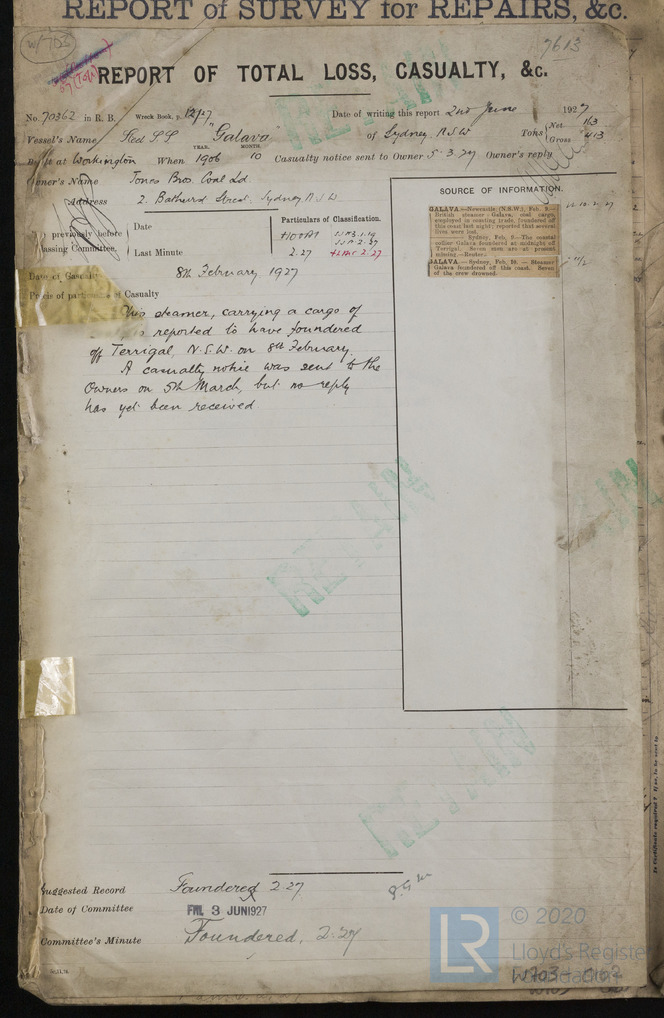 REPORT of SURVEY for REPAIRS, &c.
W703
7613
REPORT OF TOTAL LOSS, CASUALTY, &c.
No. 70362 in R. B. Wreck Book, p. 12/27 Date of writing this report 2nd June 1927
Vessel's Name Steel S.S. "Galava" of Sydney, N.S.W. Tons Net 163 Gross 413
YEAR. MONTH.
Built at Workington When 1906 10 Casualty notice sent to Owner 5-3-27 Owner's reply
Owner's Name Jones Bros. Coal Ld
Address 2. Bathurst Street, Sydney N.S.W.
SOURCE OF INFORMATION.
Particulars of Classification.
previously before Date +100A1
Classing Committee, Last Minute 2.27 +LMC 2.27
GALAVA.—Newcastle (N.S.W.), Feb. 9.—
British steamer Galava, coal cargo,
employed in coasting trade, foundered off
this coast last night; reported that several
lives were lost.
—— Sydney, Feb. 9.—The coastal
collier Galava foundered at midnight off
Terrigal. Seven men are at present
missing.—Reuter.
GALAVA.—Sydney, Feb. 10.—Steamer
Galava foundered off this coast. Seven
of the crew drowned.
Date of Casualty 8th February 1927
Precis of particulars of Casualty
This steamer, carrying a cargo of
is reported to have foundered
off Terrigal, N.S.W. on 8th February.
A casualty notice was sent to the
Owners on 5th March, but no reply
has yet been received.
RETAIN
RETAIN
RETAIN
Suggested Record Foundered 2.27
Date of Committee FRI. 3 JUN 1927
Committee's Minute Foundered, 2.27
LR © 2020
Lloyd's Register
Foundation
W703-0102